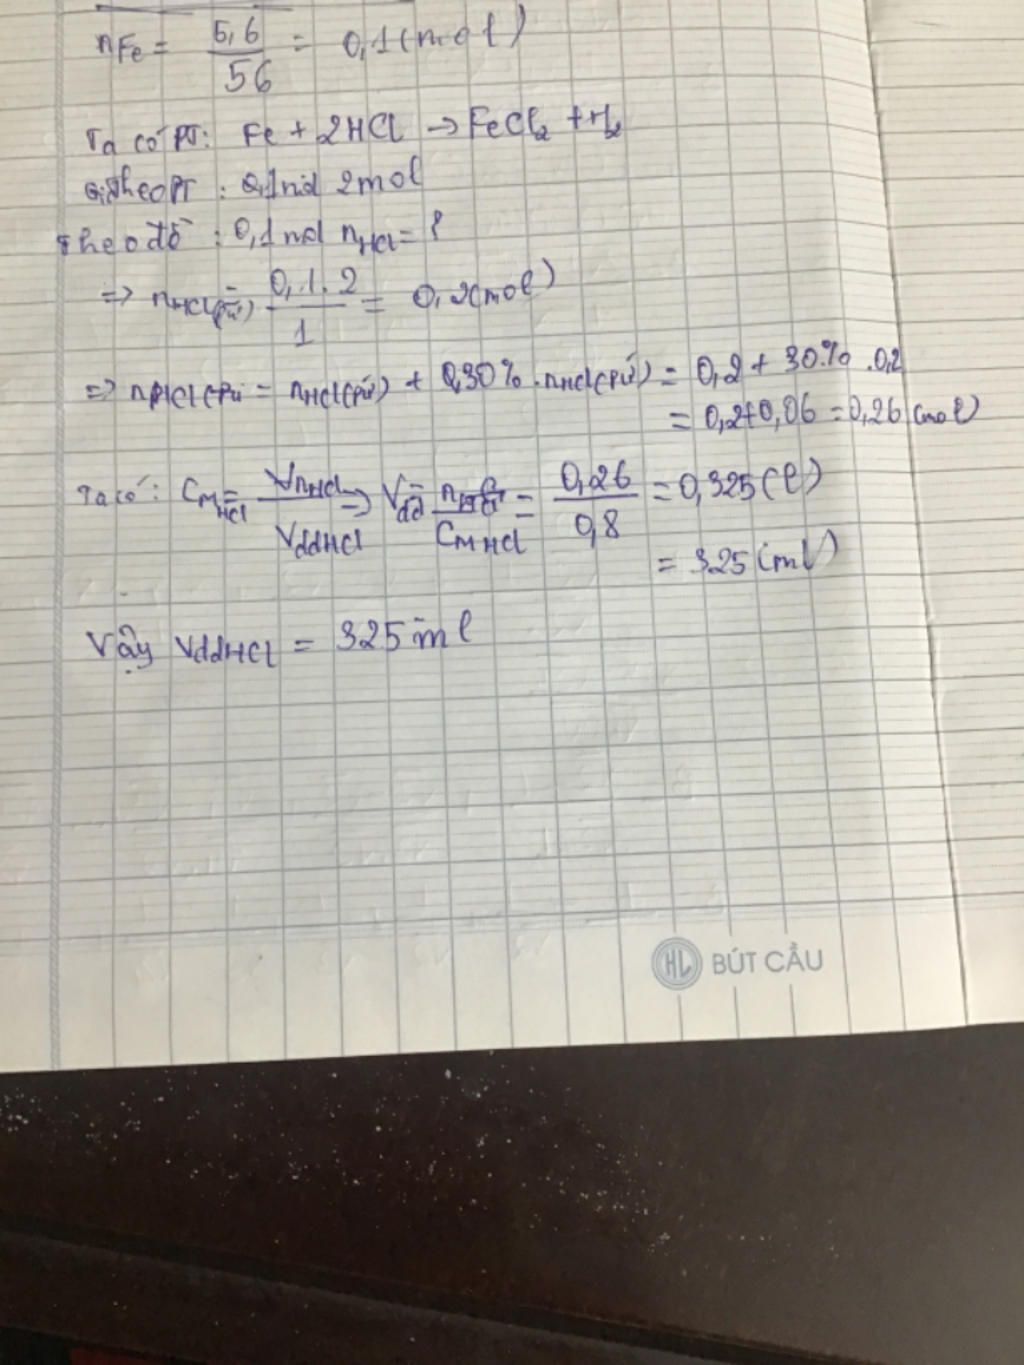 nFe = 5,6/56 = 0,1 (mol)
Ta có PT: Fe + 2HCl → FeCl₂ + H₂
Theo PT : 2mol
Theo đề : 0,1mol nHCl = ?
=> nHCl(pứ) = 0,1.2/1 = 0,2(mol)
=> = nHCl(pứ) + 30% . nHCl(pứ) = 0,2 + 30% . 0,2
= 0,2+0,06 = 0,26 (mol)
Ta có : CM HCl = nHCl/VddHCl => Vdd = /CM HCl = 0,26/0,8 = 0,325 (l)
= 325 (ml)
Vậy VddHCl = 325 ml
HL BÚT CẦU